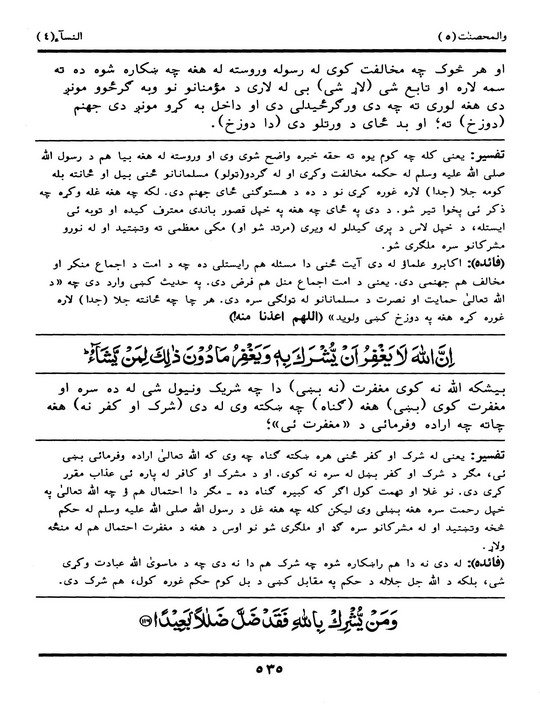 والمحصنٰت (٥) النسآء (٤)
او هر څوک چه مخالفت کوی له رسوله وروسته له هغه چه ښکاره شوه ده ته
سمه لاره او تابع شی (لاړ شی) بی له لاری د مؤمنانو نو وبه ګرځوو مونږ
دی هغه لوری ته چه دی ورګرځیدلی دی او داخل به کړو مونږ دی جهنم
(دوزخ) ته؛ او بد ځای د ورتلو دی (دا دوزخ).
تفسیر: یعنی کله چه کوم یوه ته حقه خبره واضح شوی وی او وروسته له هغه بیا هم د رسول الله
صلی الله علیه وسلم له حکمه مخالفت وکړی او له ګردو(تولو) مسلمانانو ځنی بیل او ځانته بله
کومه جلا (جدا) لاره غوره کړی نو د ده د هستوګنی ځای جهنم دی. لکه چه هغه غله وکړه چه
ذکر ئی پخوا تیر شو. د دی په ځای چه هغه په خپل قصور باندی معترف کیده او توبه ئی
ایستله، د خپل لاس د پری کیدلو له ویری (مرتد شو او) مکی معظمی ته وتښتید او له نورو
مشرکانو سره ملګری شو.
(فائده): اکابرو علماؤ له دی آیت ځنی دا مسئله هم رایستلی ده چه د امت د اجماع منکر او
مخالف هم جهنمی دی. یعنی د امت اجماع منل هم فرض دی. په حدیث کښی وارد دی چه «د
الله تعالیٰ حمایت او نصرت د مسلمانانو له تولګی سره دی. هر چا چه ځانته جلا (جدا) لاره
غوره کړه هغه په دوزخ کښی ولوید» (اللهم اعذنا منه!)
اِنَّ اللّٰهَ لَا يَغْفِرُ اَنْ يُّشْرَكَ بِهٖ وَيَغْفِرُ مَا دُوْنَ ذٰلِكَ لِمَنْ يَّشَآءُ ؕ
بیشکه الله نه کوی مغفرت (نه بښی) دا چه شریک ونیول شی له ده سره او
مغفرت کوی (بښی) هغه (ګناه) چه ښکته وی له دی (شرک او کفر نه) هغه
چاته چه اراده وفرمائی د «مغفرت ئی»؛
تفسیر: یعنی له شرک او کفر ځنی هره ښکته ګناه چه وی که الله تعالیٰ اراده وفرمائی بښی
ئی، مګر د شرک او کفر بښل له سره نه کوی. او د مشرک او کافر له پاره ئی عذاب مقرر
کړی دی. نو غلا او تهمت کول اګر که کبیره ګناه ده ــ مګر دا احتمال هم ؤ چه الله تعالیٰ په
خپل رحمت سره هغه بښلی وی لیکن کله چه هغه غل د رسول الله صلی الله علیه وسلم له حکم
څخه وتښتید او له مشرکانو سره ګډ او ملګری شو نو اوس د هغه د مغفرت احتمال هم له منځه
ولاړ.
(فائده): له دی نه دا هم راښکاره شوه چه شرک هم دا نه دی چه د ماسویٰ الله عبادت وکړی
شی، بلکه د الله جل جلاله د حکم په مقابل کښی د بل کوم حکم غوره کول، هم شرک دی.
وَمَنْ يُّشْرِكْ بِاللّٰهِ فَقَدْ ضَلَّ ضَلٰلًاۢ بَعِيْدًا ﴿۱۱۶﴾
٥٣٥